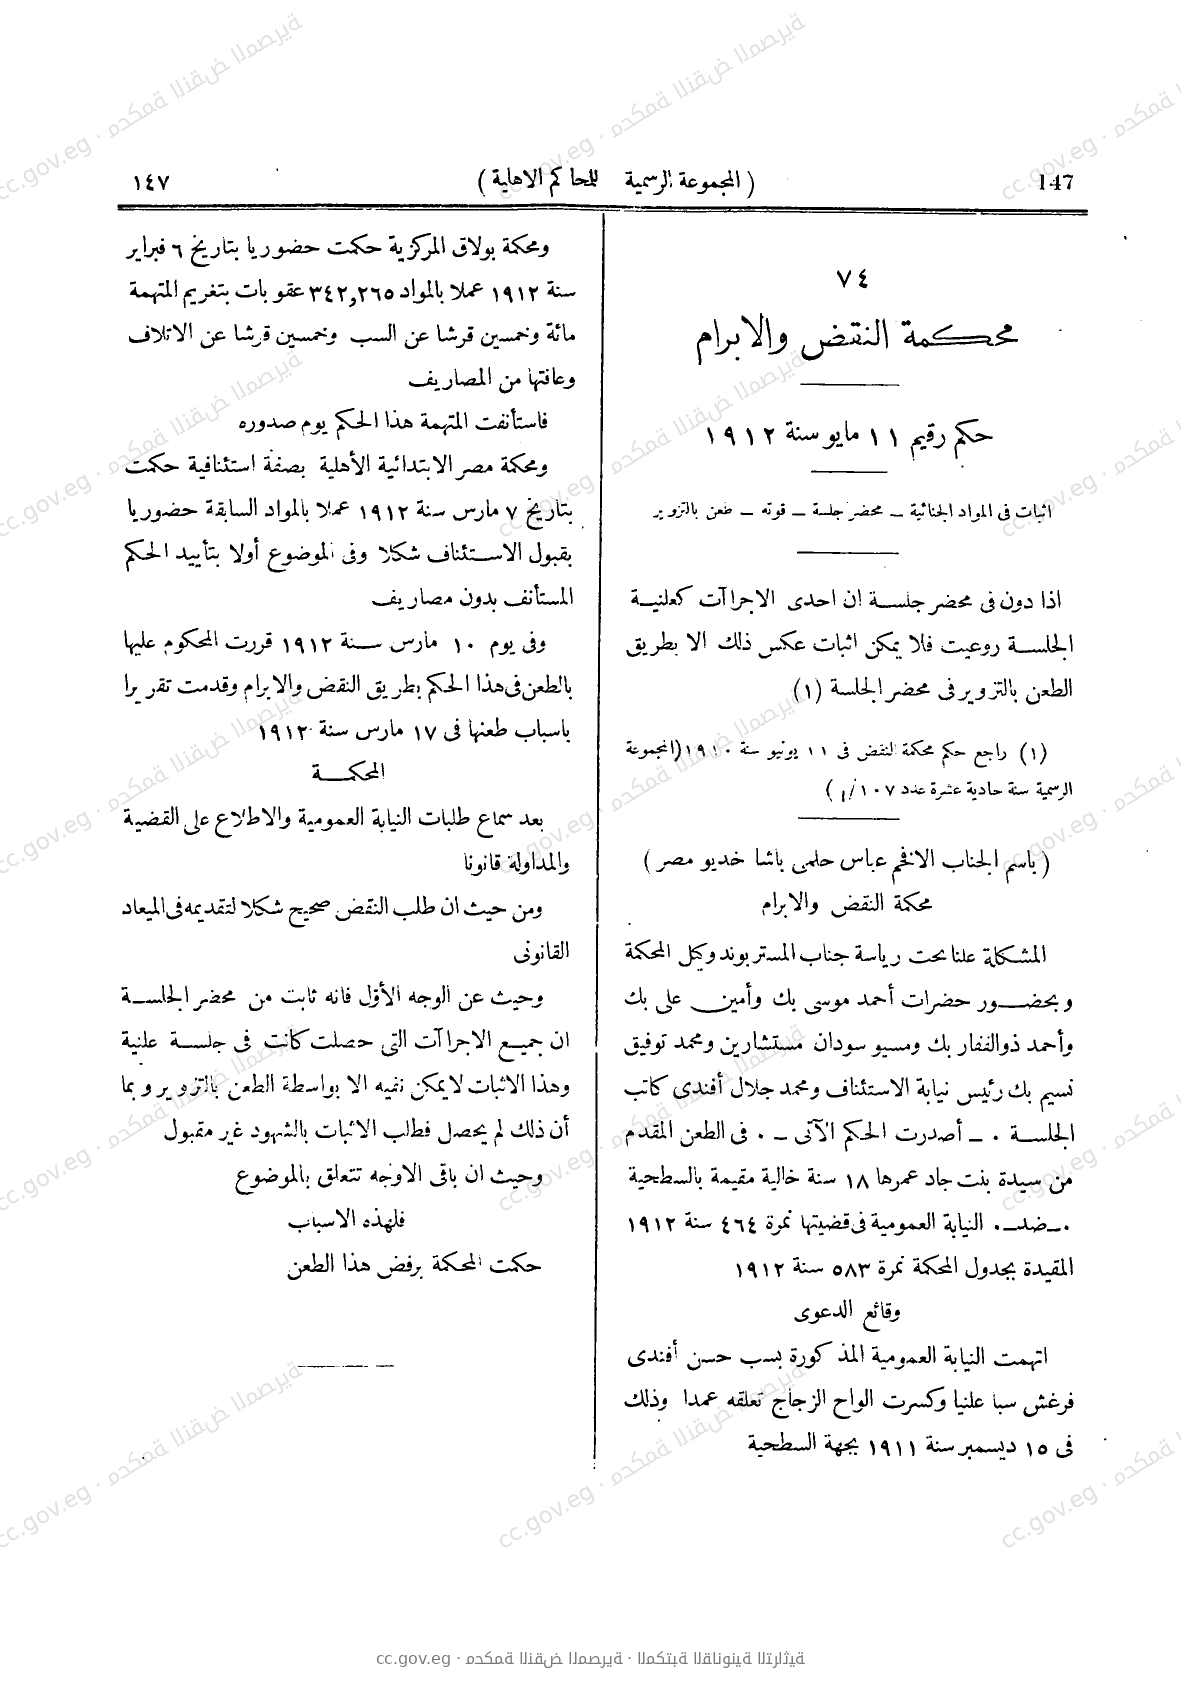 147 ( المجموعة الرسمية للمحاكم الاهلية ) ١٤٧
٧٤
محكمة النقض والابرام
حكم رقيم ١١ مايو سنة ١٩١٢
اثبات فى المواد الجنائية ــ محضر جلسة ــ قوته ــ طعن بالتزوير
اذا دون فى محضر جلسة ان احدى الاجراآت كعلنية
الجلسة روعيت فلا يمكن اثبات عكس ذلك الا بطريق
الطعن بالتزوير فى محضر الجلسة (١)
(١) راجع حكم محكمة النقض فى ١١ يونيو سنة ١٩١٠ (المجموعة
الرسمية سنة حادية عشرة عدد ١٠٧/أ )
( باسم الجناب الافخم عباس حلمى باشا خديو مصر )
محكمة النقض والابرام
المشكلة علنا تحت رياسة جناب المستر بوند وكيل المحكمة
وبحضور حضرات أحمد موسى بك وأمين على بك
وأحمد ذو الفقار بك ومسيو سودان مستشارين ومحمد توفيق
نسيم بك رئيس نيابة الاستئناف ومحمد جلال أفندى كاتب
الجلسة ٠ ــ أصدرت الحكم الآتى ــ ٠ فى الطعن المقدم
من سيدة بنت جاد عمرها ١٨ سنة خالية مقيمة بالسطحية
٠ــضدــ٠ النيابة العمومية فى قضيتها نمرة ٤٦٤ سنة ١٩١٢
المقيدة بجدول المحكمة نمرة ٥٨٣ سنة ١٩١٢
وقائع الدعوى
اتهمت النيابة العمومية المذكورة بسب حسن أفندى
فرغش سبا علنيا وكسرت الواح الزجاج تعلقه عمدا وذلك
فى ١٥ ديسمبر سنة ١٩١١ بجهة السطحية
ومحكمة بولاق المركزية حكمت حضوريا بتاريخ ٦ فبراير
سنة ١٩١٢ عملا بالمواد ٣٤٢,٢٦٥ عقوبات بتغريم المتهمة
مائة وخمسين قرشا عن السب وخمسين قرشا عن الاتلاف
وعافتها من المصاريف
فاستأنفت المتهمة هذا الحكم يوم صدوره
ومحكمة مصر الابتدائية الأهلية بصفة استئنافية حكمت
بتاريخ ٧ مارس سنة ١٩١٢ عملا بالمواد السابقة حضوريا
بقبول الاستئناف شكلا وفى الموضوع أولا بتأييد الحكم
المستأنف بدون مصاريف
وفى يوم ١٠ مارس سنة ١٩١٢ قررت المحكوم عليها
بالطعن فى هذا الحكم بطريق النقض والابرام وقدمت تقريرا
باسباب طعنها فى ١٧ مارس سنة ١٩١٢
المحكمة
بعد سماع طلبات النيابة العمومية والاطلاع على القضية
والمداولة قانونا
ومن حيث ان طلب النقض صحيح شكلا لتقديمه فى الميعاد
القانونى
وحيث عن الوجه الأوّل فانه ثابت من محضر الجلسة
ان جميع الاجراآت التى حصلت كانت فى جلسة علنية
وهذا الاثبات لا يمكن نفيه الا بواسطة الطعن بالتزوير وبما
أن ذلك لم يحصل فطلب الاثبات بالشهود غير مقبول
وحيث ان باقى الاوجه تتعلق بالموضوع
فلهذه الاسباب
حكمت المحكمة برفض هذا الطعن
cc.gov.eg · محكمة النقض المصرية · المكتبة القانونية التراثية